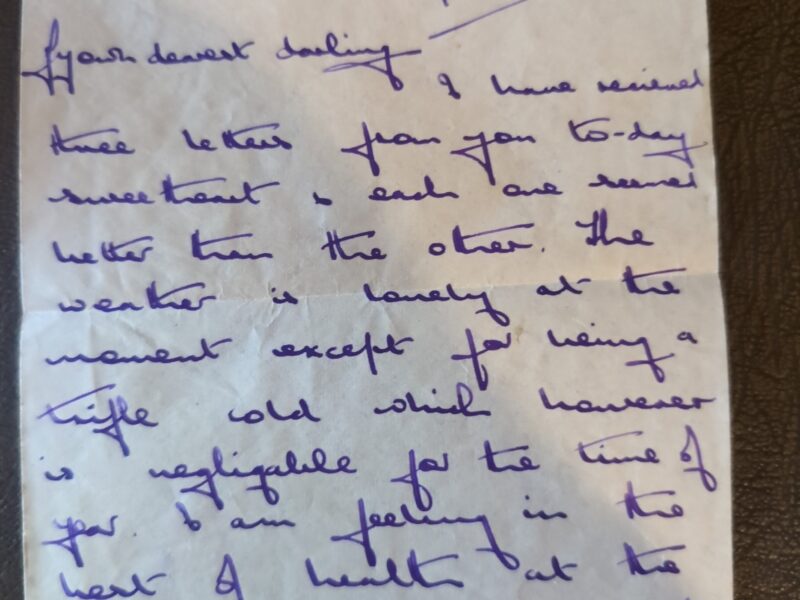 My own dearest darling
I have received
three letters from you to-day
sweetheart & each one seemed
better than the other. The
weather is lovely at the
moment except for being a
trifle cold which however
is negligable for the time of
year & am feeling in the
best of health at the